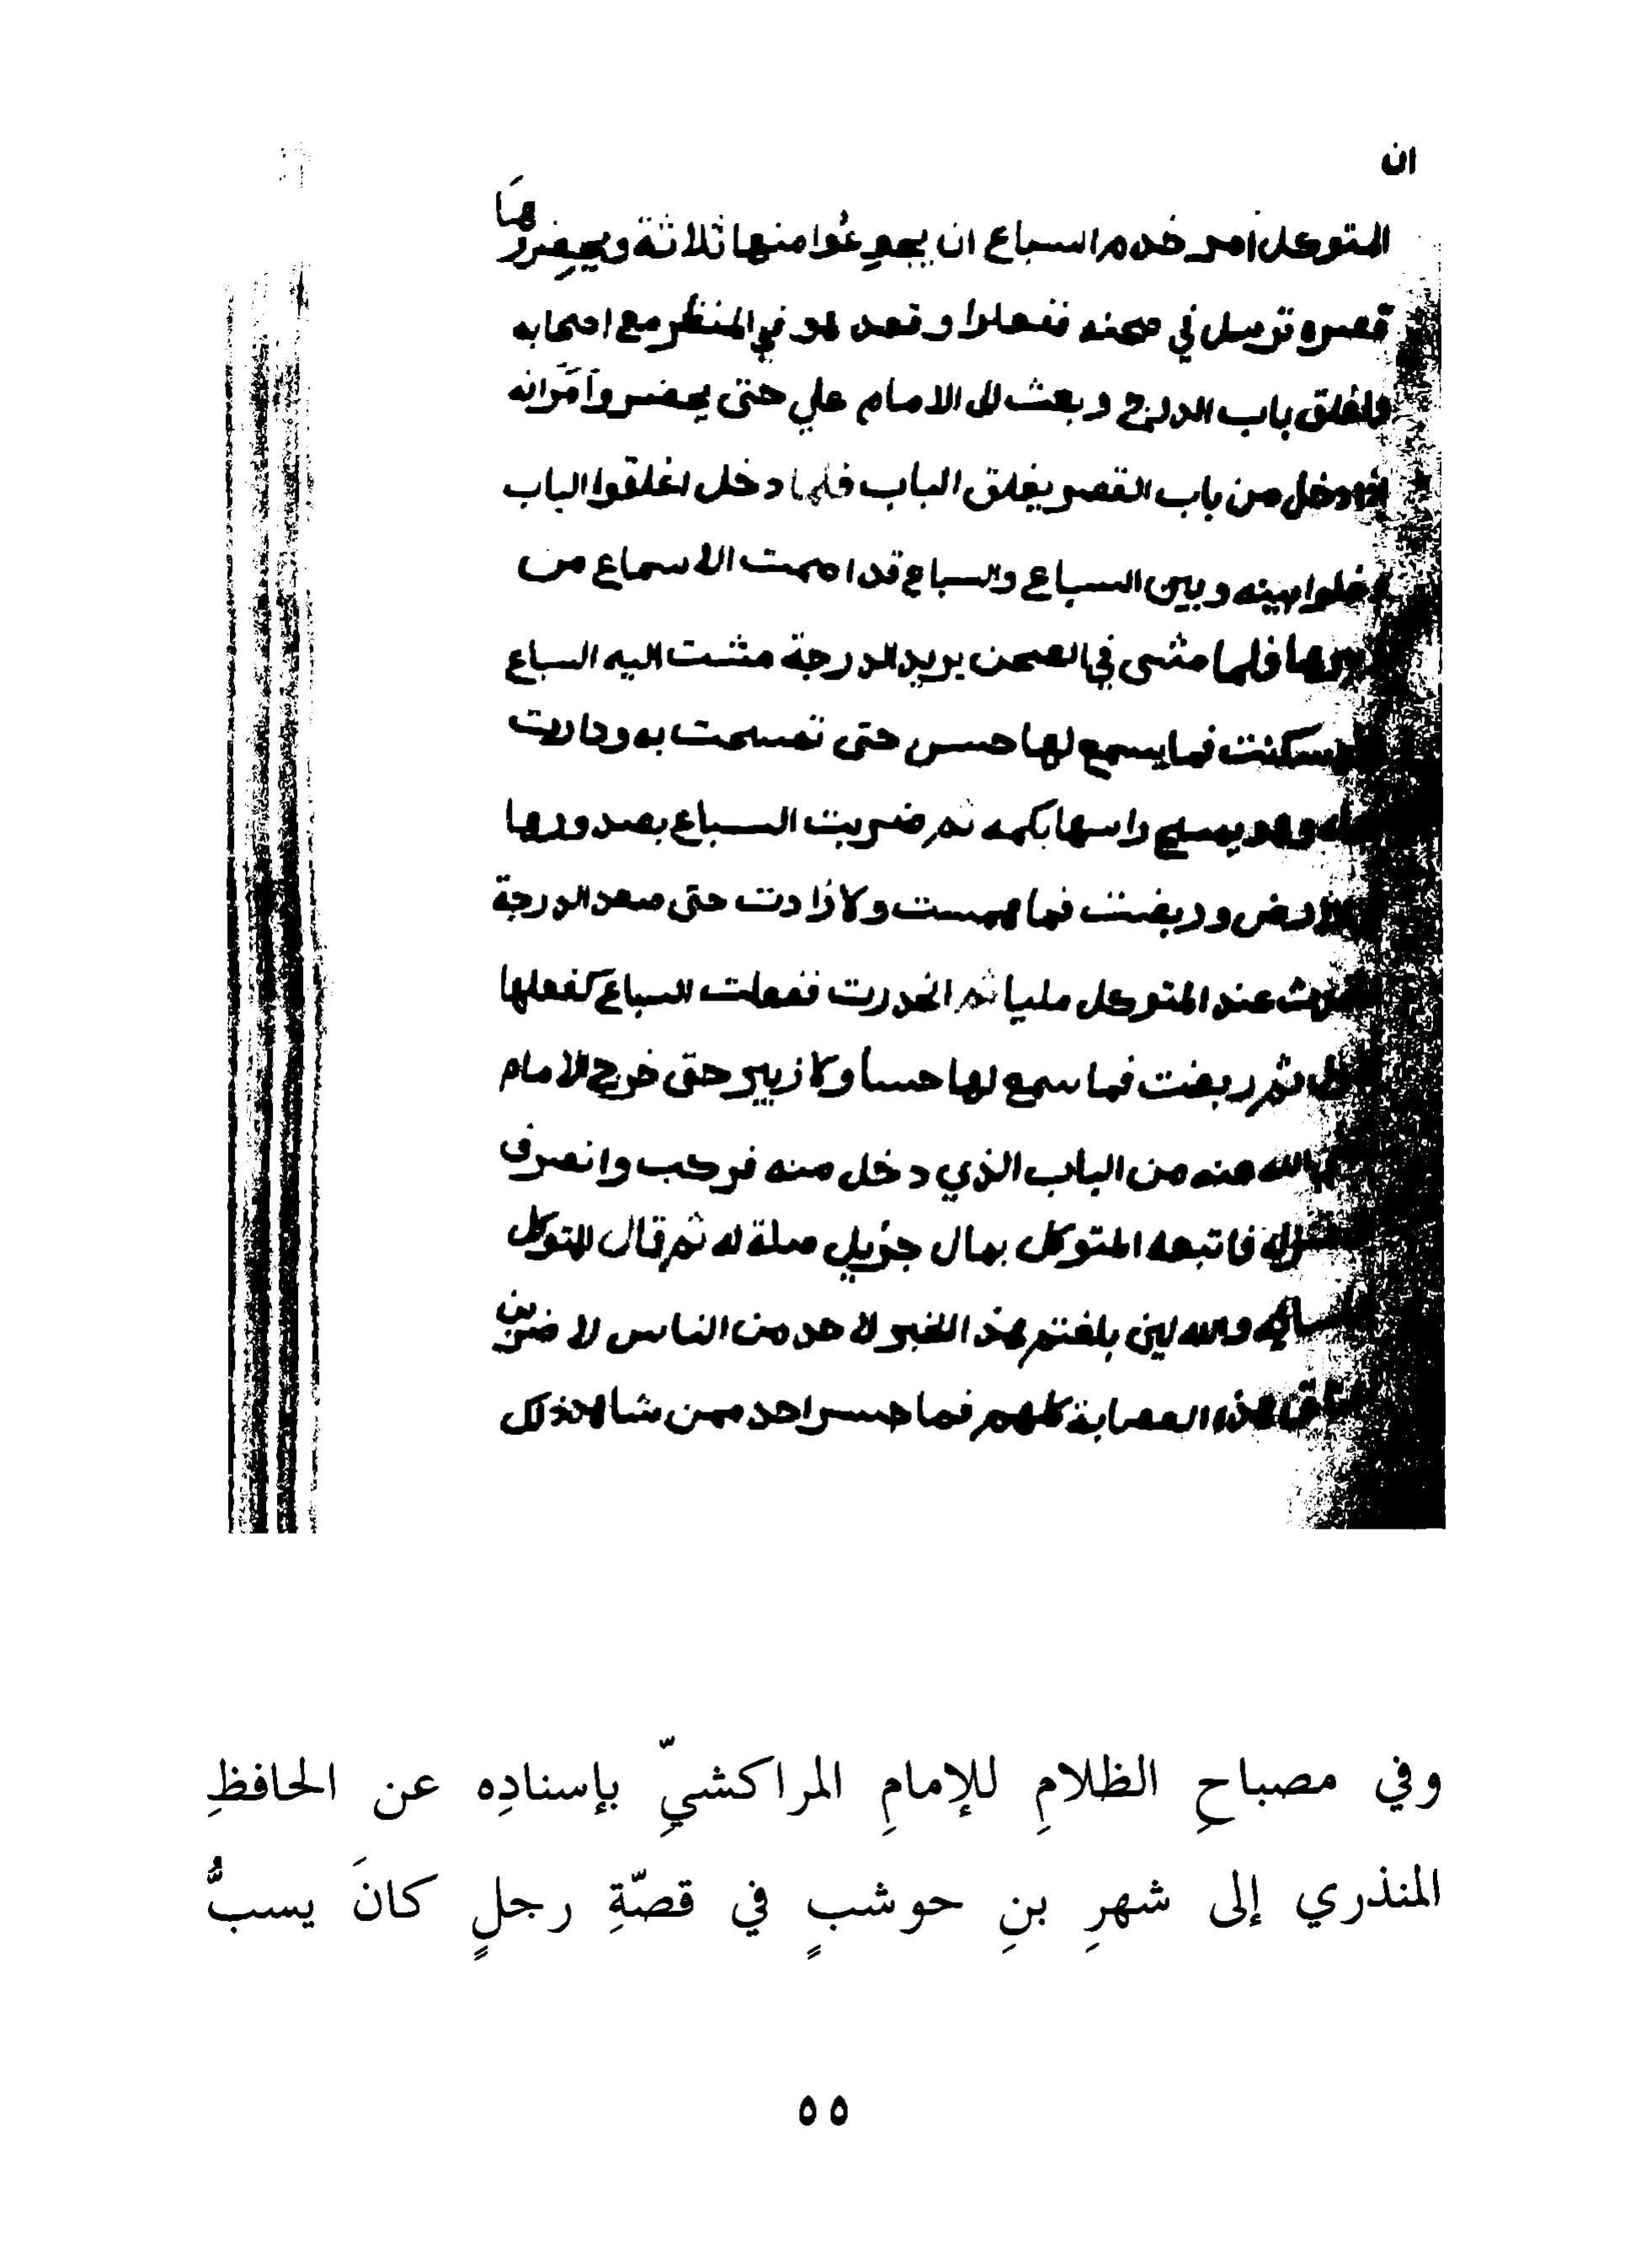 ان
المتوكل امر خدم السباع ان يجوعوا منها ثلاثة ويحضرها
قصره ترسل في صحنه ففعلوا وقعد هو في المنظر مع اصحابه
واغلق باب الدرج وبعث الى الامام علي حتى يحضر وامر انه
اذا دخل من باب القصر يغلق الباب فلما دخل اغلقوا الباب
وخلوا بينه وبين السباع والسباع قد اصمت الاسماع من
فلما مشى في الصحن يريد الدرجة مشت اليه السباع
سكنت فما يسمع لها حس حتى تمسحت به ودارت
وهو يمسح راسها بكمه ثم ضربت السباع بصدورها
الارض وربضت فما همست ولا زادت حتى صعد الدرجة
عند المتوكل مليا ثم انحدرت ففعلت السباع كفعلها
ثم ربضت فما سمع لها حسا ولا زبير حتى خرج الامام
الله عنه من الباب الذي دخل منه فركب وانصرف
فاتبعه المتوكل بمال جزيل صلة له ثم قال المتوكل
والله لين بلغتم هذ الخبر لاحد من الناس لاضربن
هذه العصابة كلهم فما جسر احد ممن شاهد ذلك
وفي مصباحِ الظلامِ للإمامِ المراكشيِّ بإسنادِه عن الحافظِ
المنذري إلى شهرِ بنِ حوشبٍ في قصّةِ رجلٍ كانَ يسبُّ
٥٥